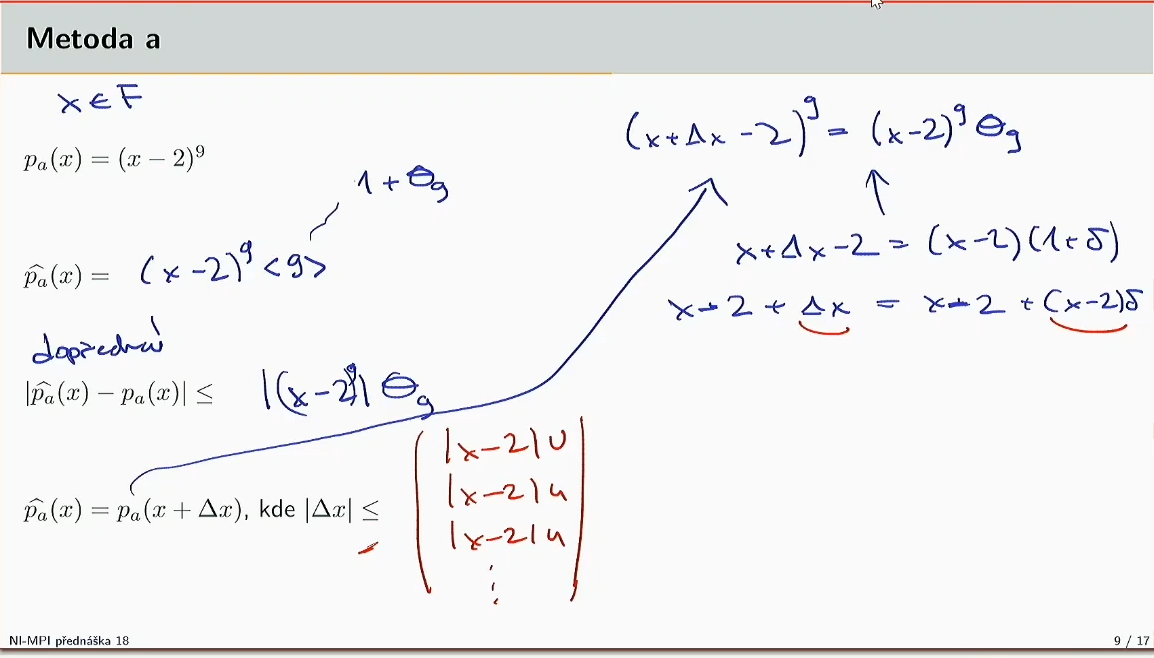 Metoda a
x ∈ F
p_a(x) = (x − 2)^9
1 + θ_9
\hat{p_a}(x) = (x − 2)^9 <9>
dopředná
|\hat{p_a}(x) − p_a(x)| ≤ |(x − 2)^9| θ_9
\hat{p_a}(x) = p_a(x + Δx), kde |Δx| ≤
|x − 2| u
|x − 2| u
|x − 2| u
⋮
(x + Δx − 2)^9 = (x − 2)^9 θ_9
x + Δx − 2 = (x − 2)(1 + δ)
x − 2 + Δx = x − 2 + (x − 2)δ
NI-MPI přednáška 18
9 / 17